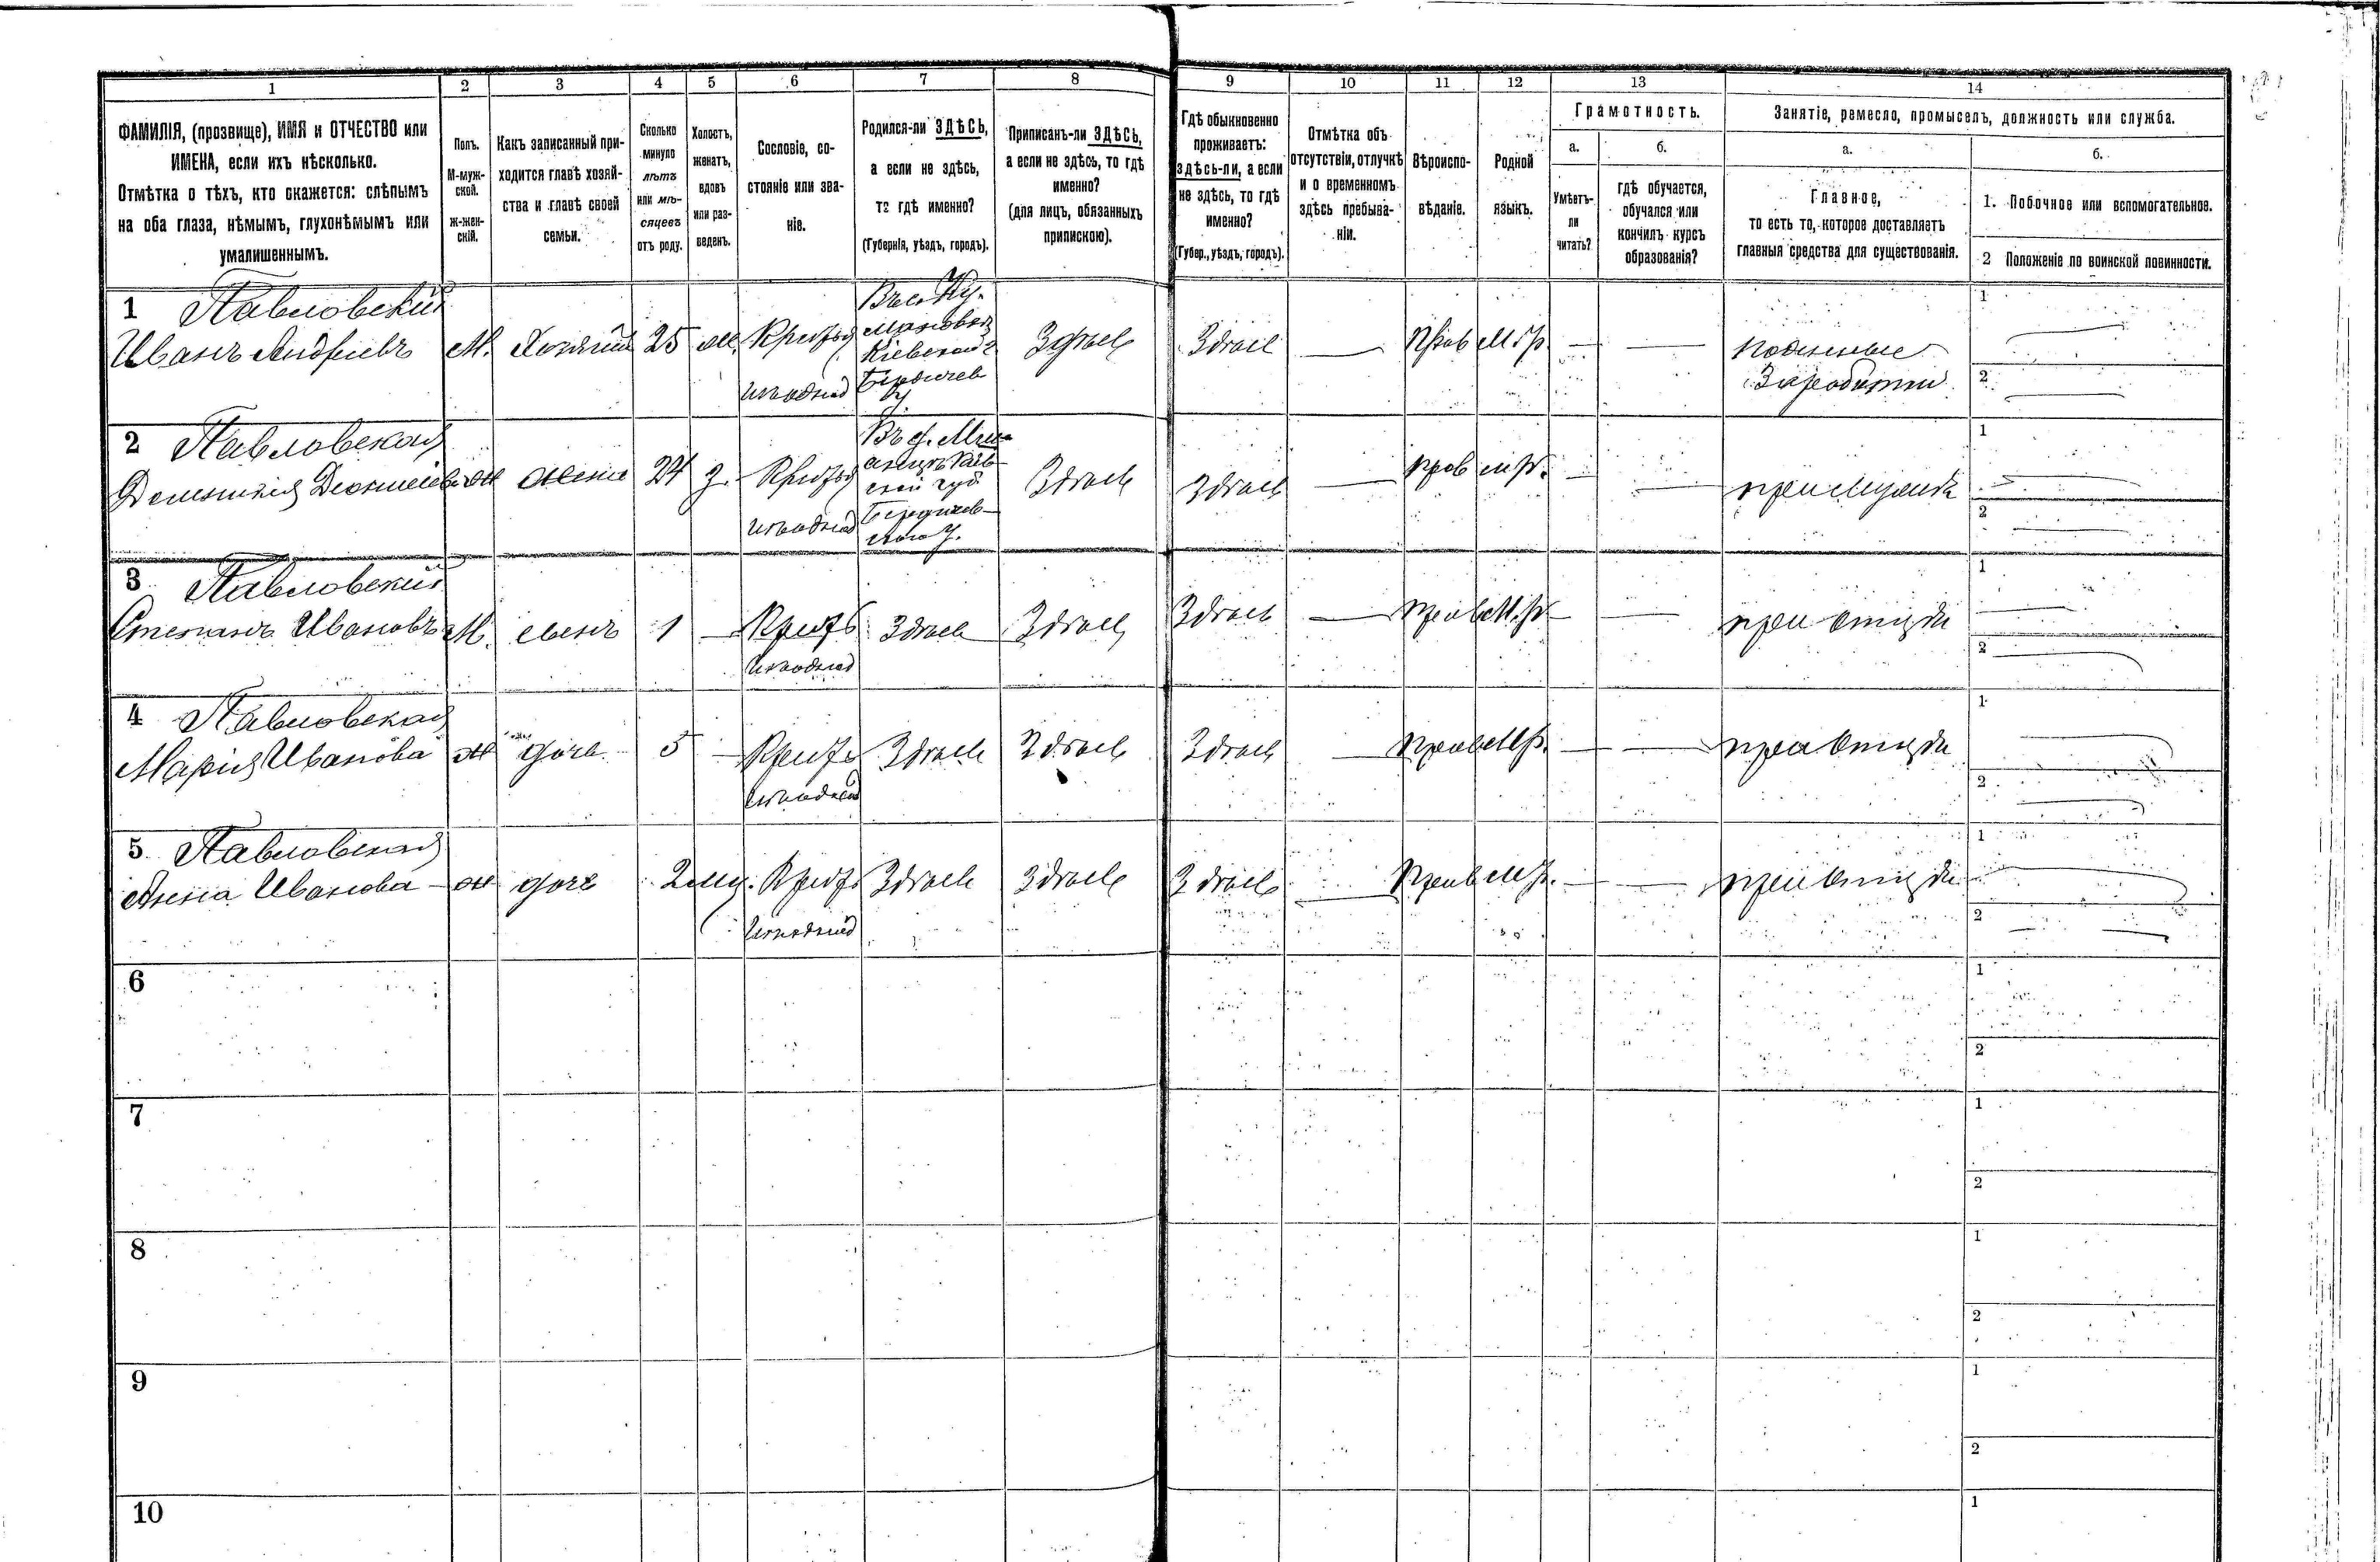 1
2
3
4
5
6
7
8
9
10
11
12
13
14
ФАМИЛІЯ, (прозвище), ИМЯ и ОТЧЕСТВО или
ИМЕНА, если ихъ нѣсколько.
Отмѣтка о тѣхъ, кто окажется: слѣпымъ
на оба глаза, нѣмымъ, глухонѣмымъ или
умалишеннымъ.
Полъ.
М-муж-
ской.
ж-жен-
скій.
Какъ записанный при-
ходится главѣ хозяй-
ства и главѣ своей
семьи.
Сколько
минуло
лѣтъ
или мѣ-
сяцевъ
отъ роду.
Холостъ,
женатъ,
вдовъ
или раз-
веденъ.
Сословіе, со-
стояніе или зва-
ніе.
Родился-ли ЗДѢСЬ,
а если не здѣсь,
то гдѣ именно?
(Губернія, уѣздъ, городъ).
Приписанъ-ли ЗДѢСЬ,
а если не здѣсь, то гдѣ
именно?
(для лицъ, обязанныхъ
припискою).
Гдѣ обыкновенно
проживаетъ:
здѣсь-ли, а если
не здѣсь, то гдѣ
именно?
(Губер., уѣздъ, городъ).
Отмѣтка объ
отсутствіи, отлучкѣ
и о временномъ
здѣсь пребыва-
ніи.
Вѣроиспо-
вѣданіе.
Родной
языкъ.
Грамотность.
а.
Умѣетъ-
ли
читать?
б.
гдѣ обучается,
обучался или
кончилъ курсъ
образованія?
Занятіе, ремесло, промыселъ, должность или служба.
а.
Главное,
то есть то, которое доставляетъ
главныя средства для существованія.
б.
1. Побочное или вспомогательное.
2 Положеніе по воинской повинности.
1 Павловскій
Иванъ Андреевъ М. Хозяинъ 25
Кіевской
Здѣсь Здѣсь — Прав М.р. — —
Поденные
Заработки
1
2
2 Павловская
ж жена 24 з.
Здѣсь Здѣсь — прав м.р. — — при мужѣ
1
2
3 Павловскій
Степанъ Ивановъ М. сынъ 1 — Здѣсь Здѣсь Здѣсь — Прав М.р. — — при отцѣ
1
2
4 Павловская
Марія Иванова ж дочь 5 — Здѣсь Здѣсь Здѣсь — Прав М.р. — — при отцѣ
1
2
5 Павловская
Анна Иванова ж дочь 2 мц. Здѣсь Здѣсь Здѣсь — Прав М.р. — — при отцѣ
1
2
6
1
2
7
1
2
8
1
2
9
1
2
10
1